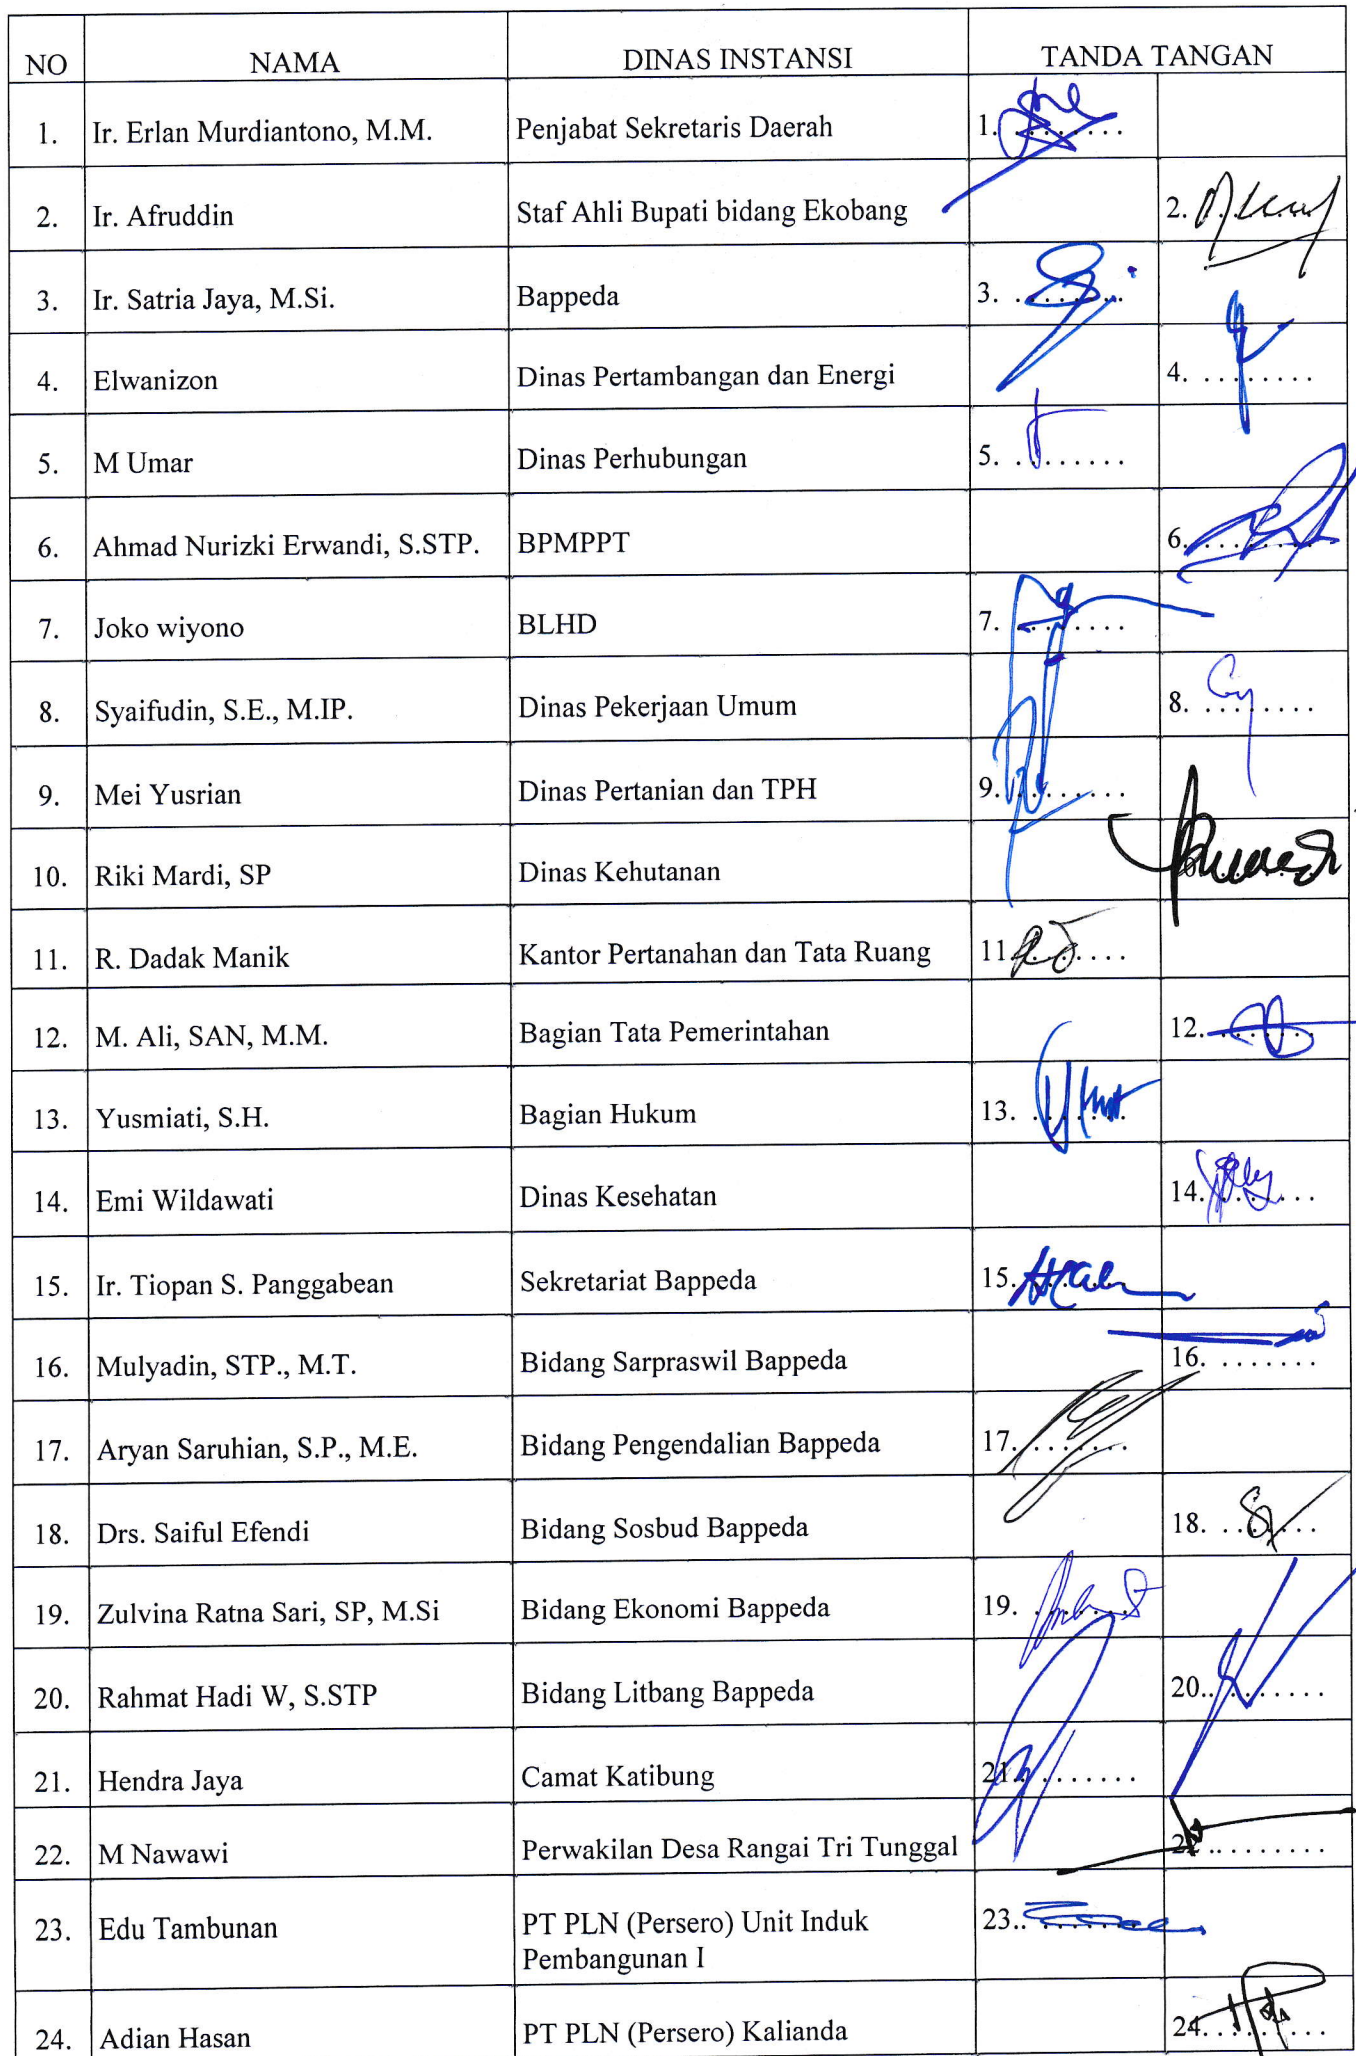 NO NAMA DINAS INSTANSI TANDA TANGAN
1. Ir. Erlan Murdiantono, M.M. Penjabat Sekretaris Daerah 1. . . . . . . . .
2. Ir. Afruddin Staf Ahli Bupati bidang Ekobang 2.
3. Ir. Satria Jaya, M.Si. Bappeda 3. . . . . . . . .
4. Elwanizon Dinas Pertambangan dan Energi 4. . . . . . . . .
5. M Umar Dinas Perhubungan 5. . . . . . . . .
6. Ahmad Nurizki Erwandi, S.STP. BPMPPT 6. . . . . . . . .
7. Joko wiyono BLHD 7. . . . . . . . .
8. Syaifudin, S.E., M.IP. Dinas Pekerjaan Umum 8. . . . . . . . .
9. Mei Yusrian Dinas Pertanian dan TPH 9. . . . . . . . .
10. Riki Mardi, SP Dinas Kehutanan
11. R. Dadak Manik Kantor Pertanahan dan Tata Ruang 11. . . . . . . .
12. M. Ali, SAN, M.M. Bagian Tata Pemerintahan 12. . . . . . . .
13. Yusmiati, S.H. Bagian Hukum 13. . . . . . . .
14. Emi Wildawati Dinas Kesehatan 14. . . . . . . .
15. Ir. Tiopan S. Panggabean Sekretariat Bappeda 15.
16. Mulyadin, STP., M.T. Bidang Sarpraswil Bappeda 16. . . . . . . .
17. Aryan Saruhian, S.P., M.E. Bidang Pengendalian Bappeda 17. . . . . . . .
18. Drs. Saiful Efendi Bidang Sosbud Bappeda 18. . . . . . . .
19. Zulvina Ratna Sari, SP, M.Si Bidang Ekonomi Bappeda 19. . . . . . . .
20. Rahmat Hadi W, S.STP Bidang Litbang Bappeda 20.. . . . . . . .
21. Hendra Jaya Camat Katibung 21.. . . . . . . .
22. M Nawawi Perwakilan Desa Rangai Tri Tunggal 22 . . . . . . . .
23. Edu Tambunan PT PLN (Persero) Unit Induk 23..
Pembangunan I
24. Adian Hasan PT PLN (Persero) Kalianda 24. . . . . . . . .